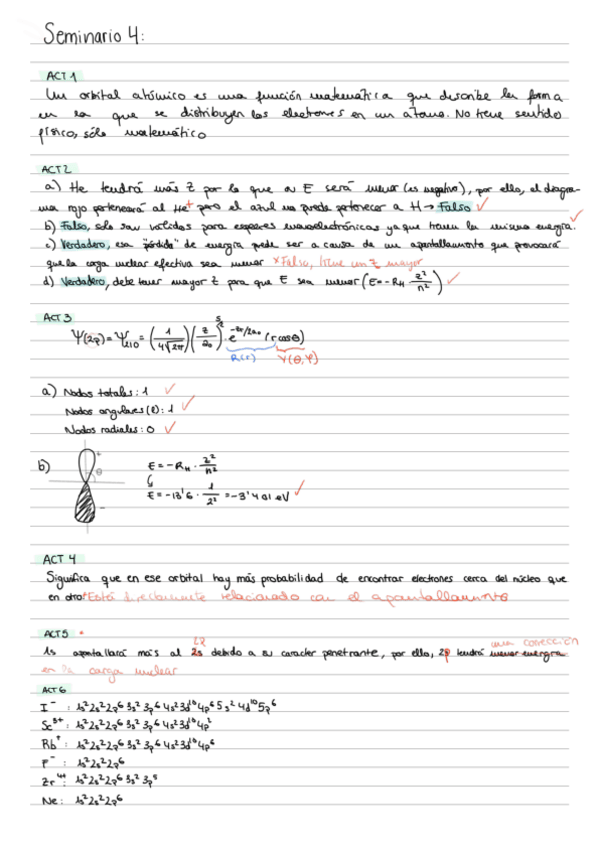 Seminario 4:
ACT 1
Un orbital atómico es una función matemática que describe la forma
en la que se distribuyen los electrones en un átomo. No tiene sentido
físico, sólo matemático
ACT 2
a) He tendrá más Z por lo que su E será menor (es negativo), por ello, el diagra-
ma rojo pertenecerá al He+ pero el azul no puede pertenecer a H → Falso ✓
b) Falso, solo son válidos para especies monoelectrónicas ya que tienen la misma energía. ✓
c) Verdadero, esa "pérdida" de energía puede ser a causa de un apantallamiento que provocará
que la carga nuclear efectiva sea menor *Falso, tiene un Z mayor
d) Verdadero, debe tener mayor Z para que E sea menor (E=-R_H · Z²/n²) ✓
ACT 3
Ψ(2p)=Ψ₂₁₀=(1/4√2π)(Z/a₀)^(5/2) · e^(-Zr/2a₀) (r cosθ)
R(r) Y(θ,φ)
a) Nodos totales: 1 ✓
Nodos angulares (l): 1 ✓
Nodos radiales: 0 ✓
b) + θ -
E = -R_H · Z²/n²
E = -13'6 · 1/2² = -3'401 eV ✓
ACT 4
Significa que en ese orbital hay más probabilidad de encontrar electrones cerca del núcleo que
en otro. *Está directamente relacionado con el apantallamiento
ACT 5 *
1s apantallará más al 2s 2p debido a su caracter penetrante, por ello, 2p tendrá menor energía una corrección
en la carga nuclear
ACT 6
I⁻ : 1s²2s²2p⁶3s²3p⁶4s²3d¹⁰4p⁶5s²4d¹⁰5p⁶
: 1s²2s²2p⁶3s²3p⁶4s²3d¹⁰4p²
Rb⁺ : 1s²2s²2p⁶3s²3p⁶4s²3d¹⁰4p⁶
F⁻ : 1s²2s²2p⁶
Zr⁴⁺ : 1s²2s²2p⁶3s²3p⁵
Ne : 1s²2s²2p⁶